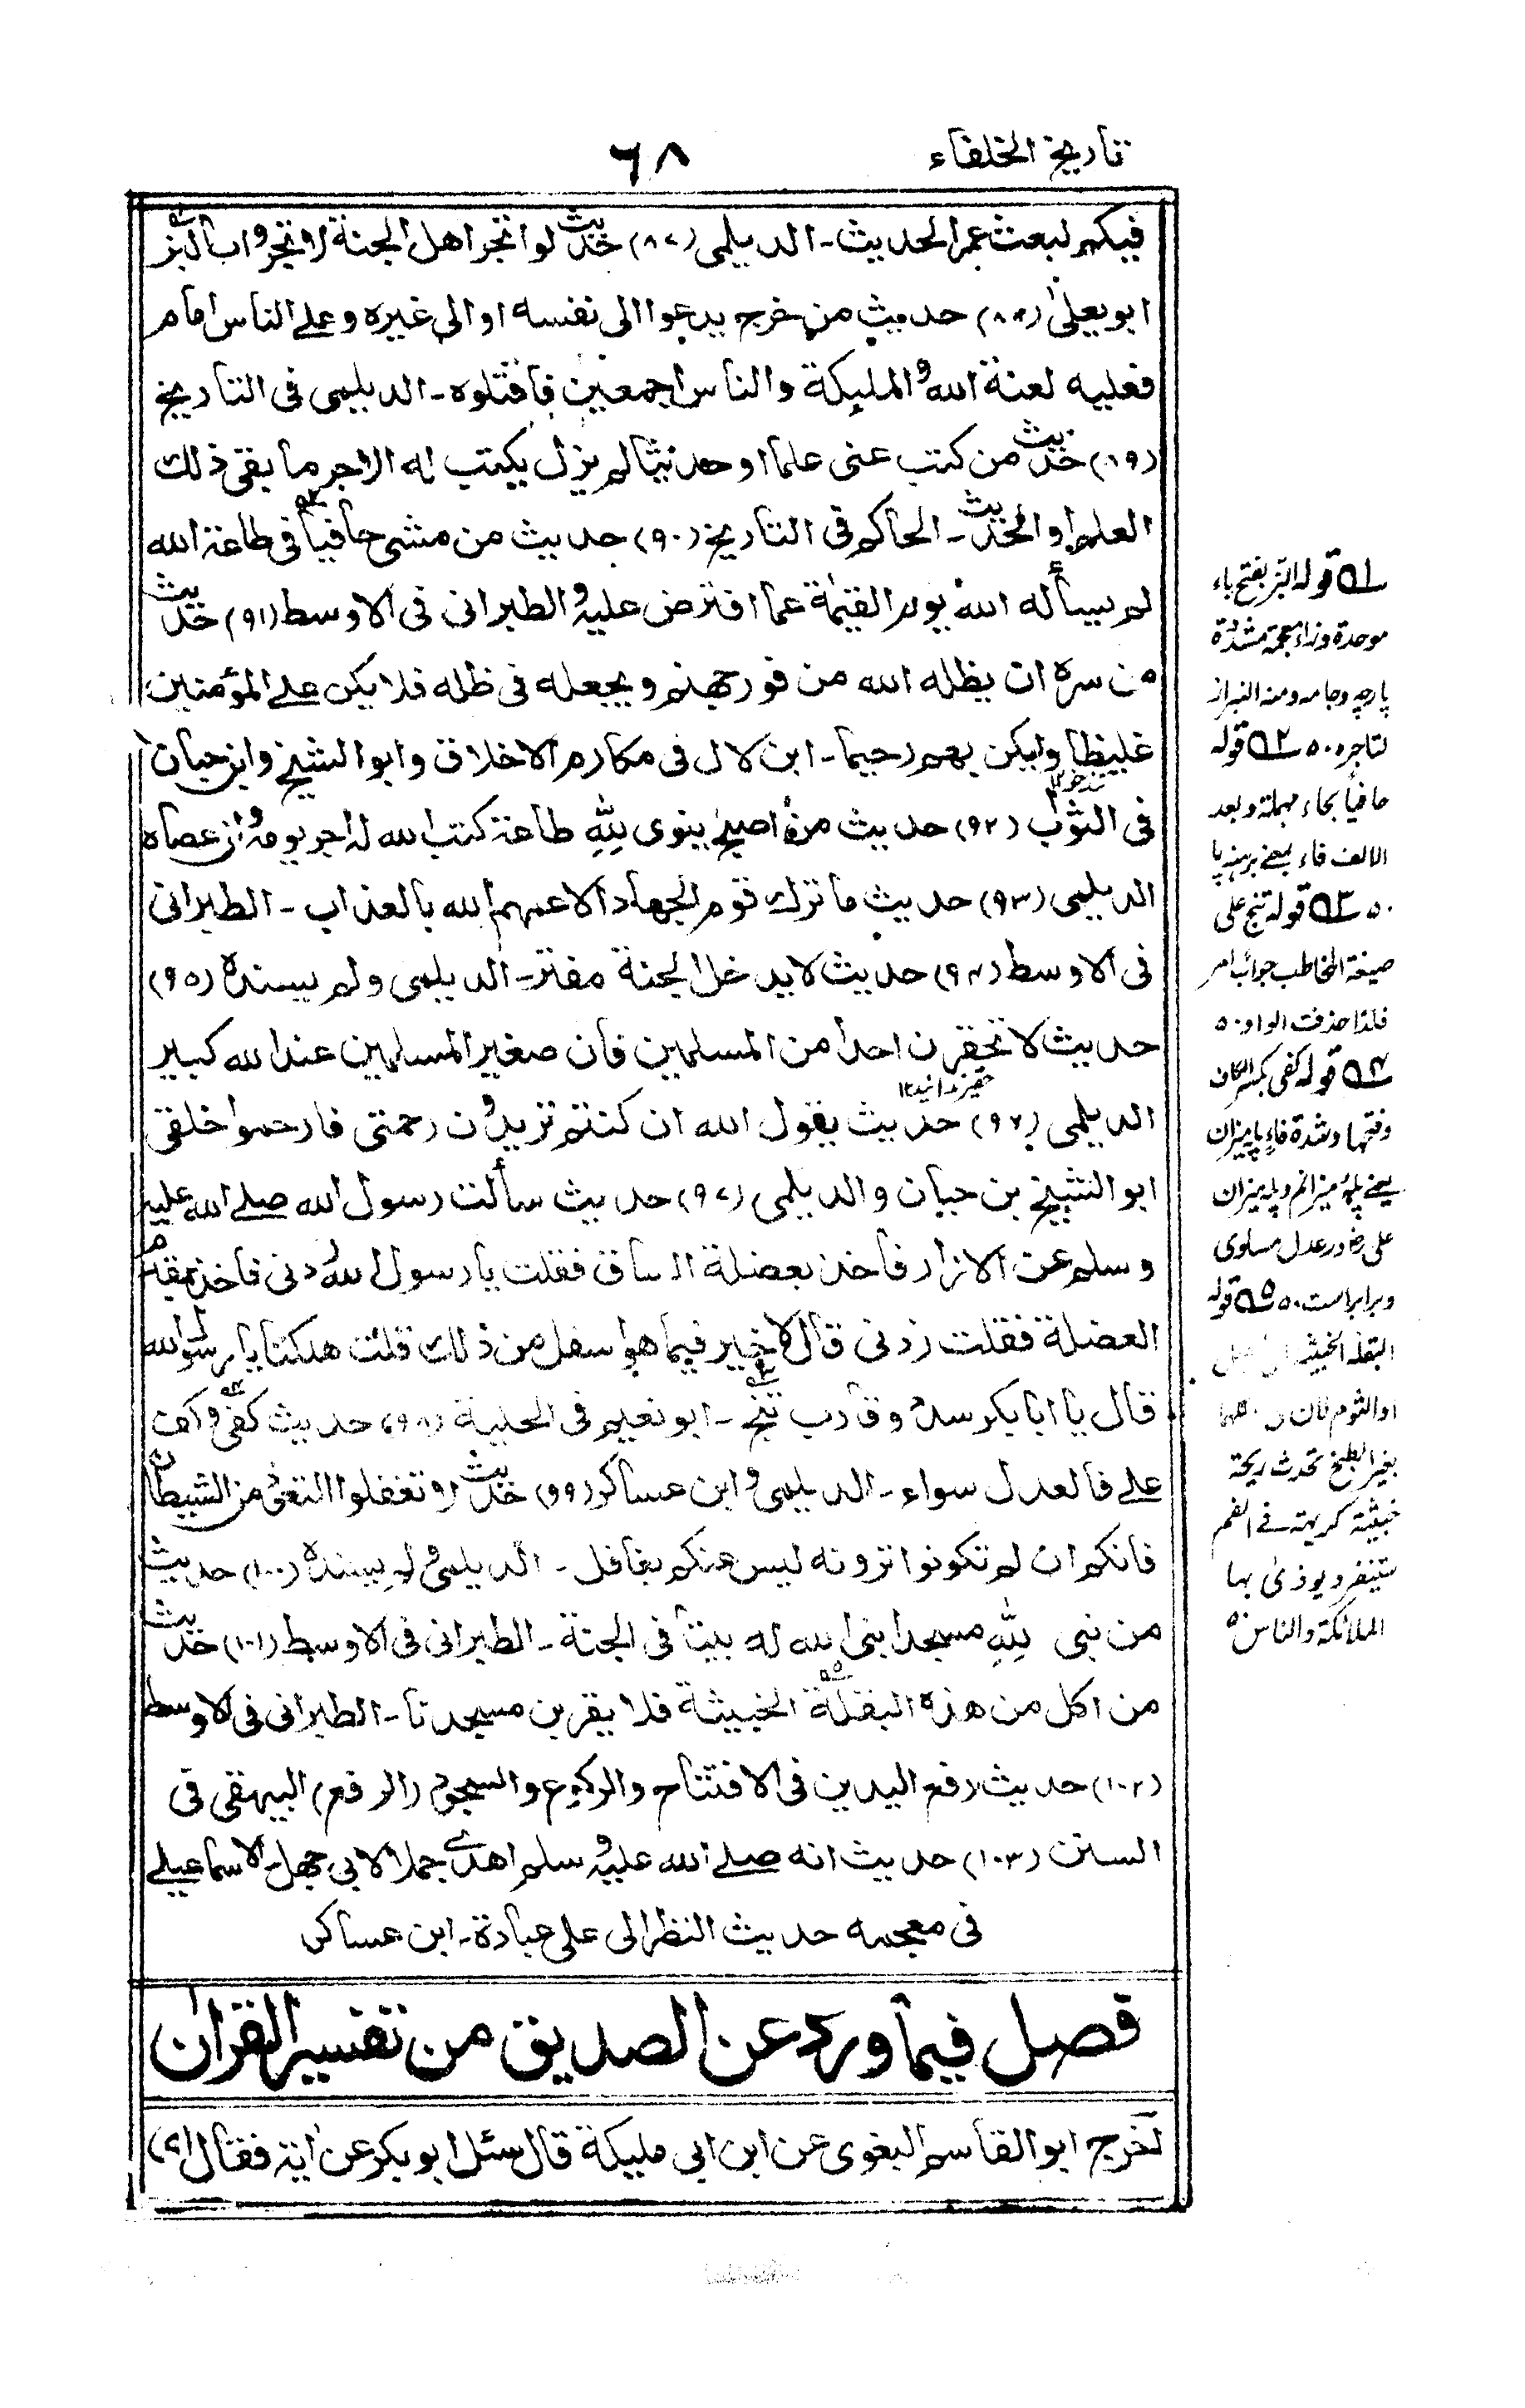 تاريخ الخلفاء
٦٨
فيكم لبعث عمر الحديث ـ الديلمى (٨٧) حديث لو اتجر اهل الجنة لاتجروا بالبز
ابو يعلىٰ (٨٨) حديث من خرج يدعوا الى نفسه او الى غيره وعلے الناس امام
فعليه لعنة الله والمليكة والناس اجمعين فاقتلوه ـ الديلمى فى التاريخ
(٨٩) حديث من كتب عنى علما او حديثا لم يزل يكتب له الاجر ما بقى ذلك
العلم او الحديث ـ الحاكم فى التاريخ (٩٠) حديث من مشى حافيا فى طاعة الله
لم يسأله الله يوم القيٰمة عما افترض عليه و الطبرانى فى الاوسط (٩١) حديث
من سره ان يظله الله من فور جهنم ويجعله فى ظله فلا يكن علے المؤمنين
غليظا وليكن بهم رحيما ـ ابن لال فى مكارم الاخلاق وابو الشيخ وابن حبان
فى الثواب (٩٢) حديث من اصبح ينوى لله طاعة كتب الله له اجر يومه وان عصاه
الديلمى (٩٣) حديث ما ترك قوم الجهاد الا عمهم الله بالعذاب ـ الطبرانى
فى الاوسط (٩٤) حديث لا يدخل الجنة مفتر ـ الديلمى ولم يسنده (٩٥)
حديث لا تحقرن احدا من المسلمين فان صغير المسلمين عند الله كبير
حقير ندانيد ١٢
الديلمى (٩٦) حديث يقول الله ان كنتم تريدون رحمتى فارحموا خلقى
ابو الشيخ بن حبان والديلمى (٩٧) حديث سألت رسول الله صلے الله عليه
وسلم عن الازار فاخذ بعضلة الساق فقلت يا رسول الله زدنى فاخذ بمقدم
العضلة فقلت زدنى قال لا خير فيما هو اسفل من ذلك قلت هلكنا يا رسول الله
قال يا ابا بكر سدد وقارب تنج ـ ابو نعيم فى الحلية (٩٨) حديث كفى وكف
علے فى العدل سواء ـ الديلمى و ابن عساكر (٩٩) حديث لا تغفلوا التعوذ من الشيطان
فانكم ان لم تكونوا ترونه ليس عنكم بغافل ـ الديلمى ولم يسنده (١٠٠) حديث
من بنى لله مسجدا بنى الله له بيتا فى الجنة ـ الطبرانى فى الاوسط (١٠١) حديث
من اكل من هذه البقلة الخبيثة فلا يقربن مسجدنا ـ الطبرانى فى الاوسط
(١٠٢) حديث رفع اليدين فى الافتتاح والركوع والسجود (الرفع) البيهقى فى
السنن (١٠٣) حديث انه صلے الله عليه و سلم اهدى جملا لابى جهل ـ الاسماعيلے
فى معجمه حديث النظر الى على عبادة ـ ابن عساكر
فصل فيما ورد عن الصديق من تفسير القراٰن
اخرج ابو القاسم البغوى عن ابن ابى مليكة قال سئل ابو بكر عن اٰية فقال اى
١ قوله البز بفتح باء
موحدة وزاء معجمة مشددة
پارچه وجامه ومنه البزاز
لتاجره ٢ قوله
حافيا بحاء مهملة وبعد
الالف فاء بمعنے برہنه پا
٣ قوله تنج على
صيغة المخاطب جواب امر
فلذا حذفت الواو
٤ قوله كفى بكسر الكاف
وفتحها وشدة فاء پله ميزان
يعنے پلهٔ ميزانم وپله ميزان
على رض در عدل مساوى
وبرابر است ٥ قوله
البقلة الخبيثة
او الثوم لان
بغير الطبخ تحدث ريحة
خبيثة كريهة فے الفم
يتنفر ويوذى بها
الملائكة والناس